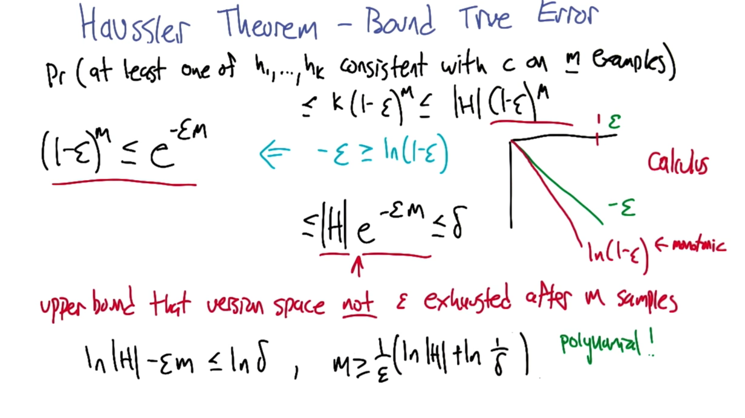 Haussler Theorem - Bound True Error
Pr (at least one of h₁,...,hₖ consistent with c on m examples)
≤ k(1-ε)^m ≤ |H|(1-ε)^m
(1-ε)^m ≤ e^{-εm} ⇐ -ε ≥ ln(1-ε)
ε
calculus
-ε
ln(1-ε) ← monotonic
≤ |H| e^{-εm} ≤ δ
upper bound that version space not ε exhausted after m samples
ln|H| - εm ≤ ln δ , m ≥ 1/ε (ln|H| + ln 1/δ)
polynomial!